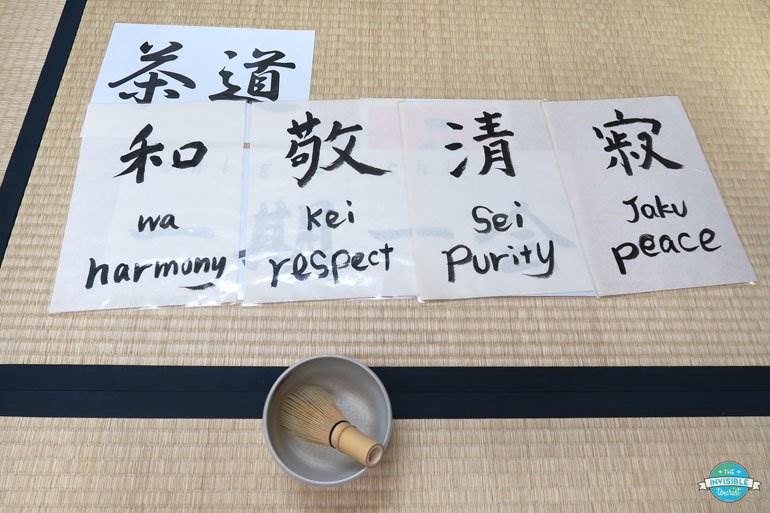 茶道
和
wa
harmony
敬
Kei
respect
清
Sei
purity
寂
Jaku
peace
THE
INVISIBLE
tourist